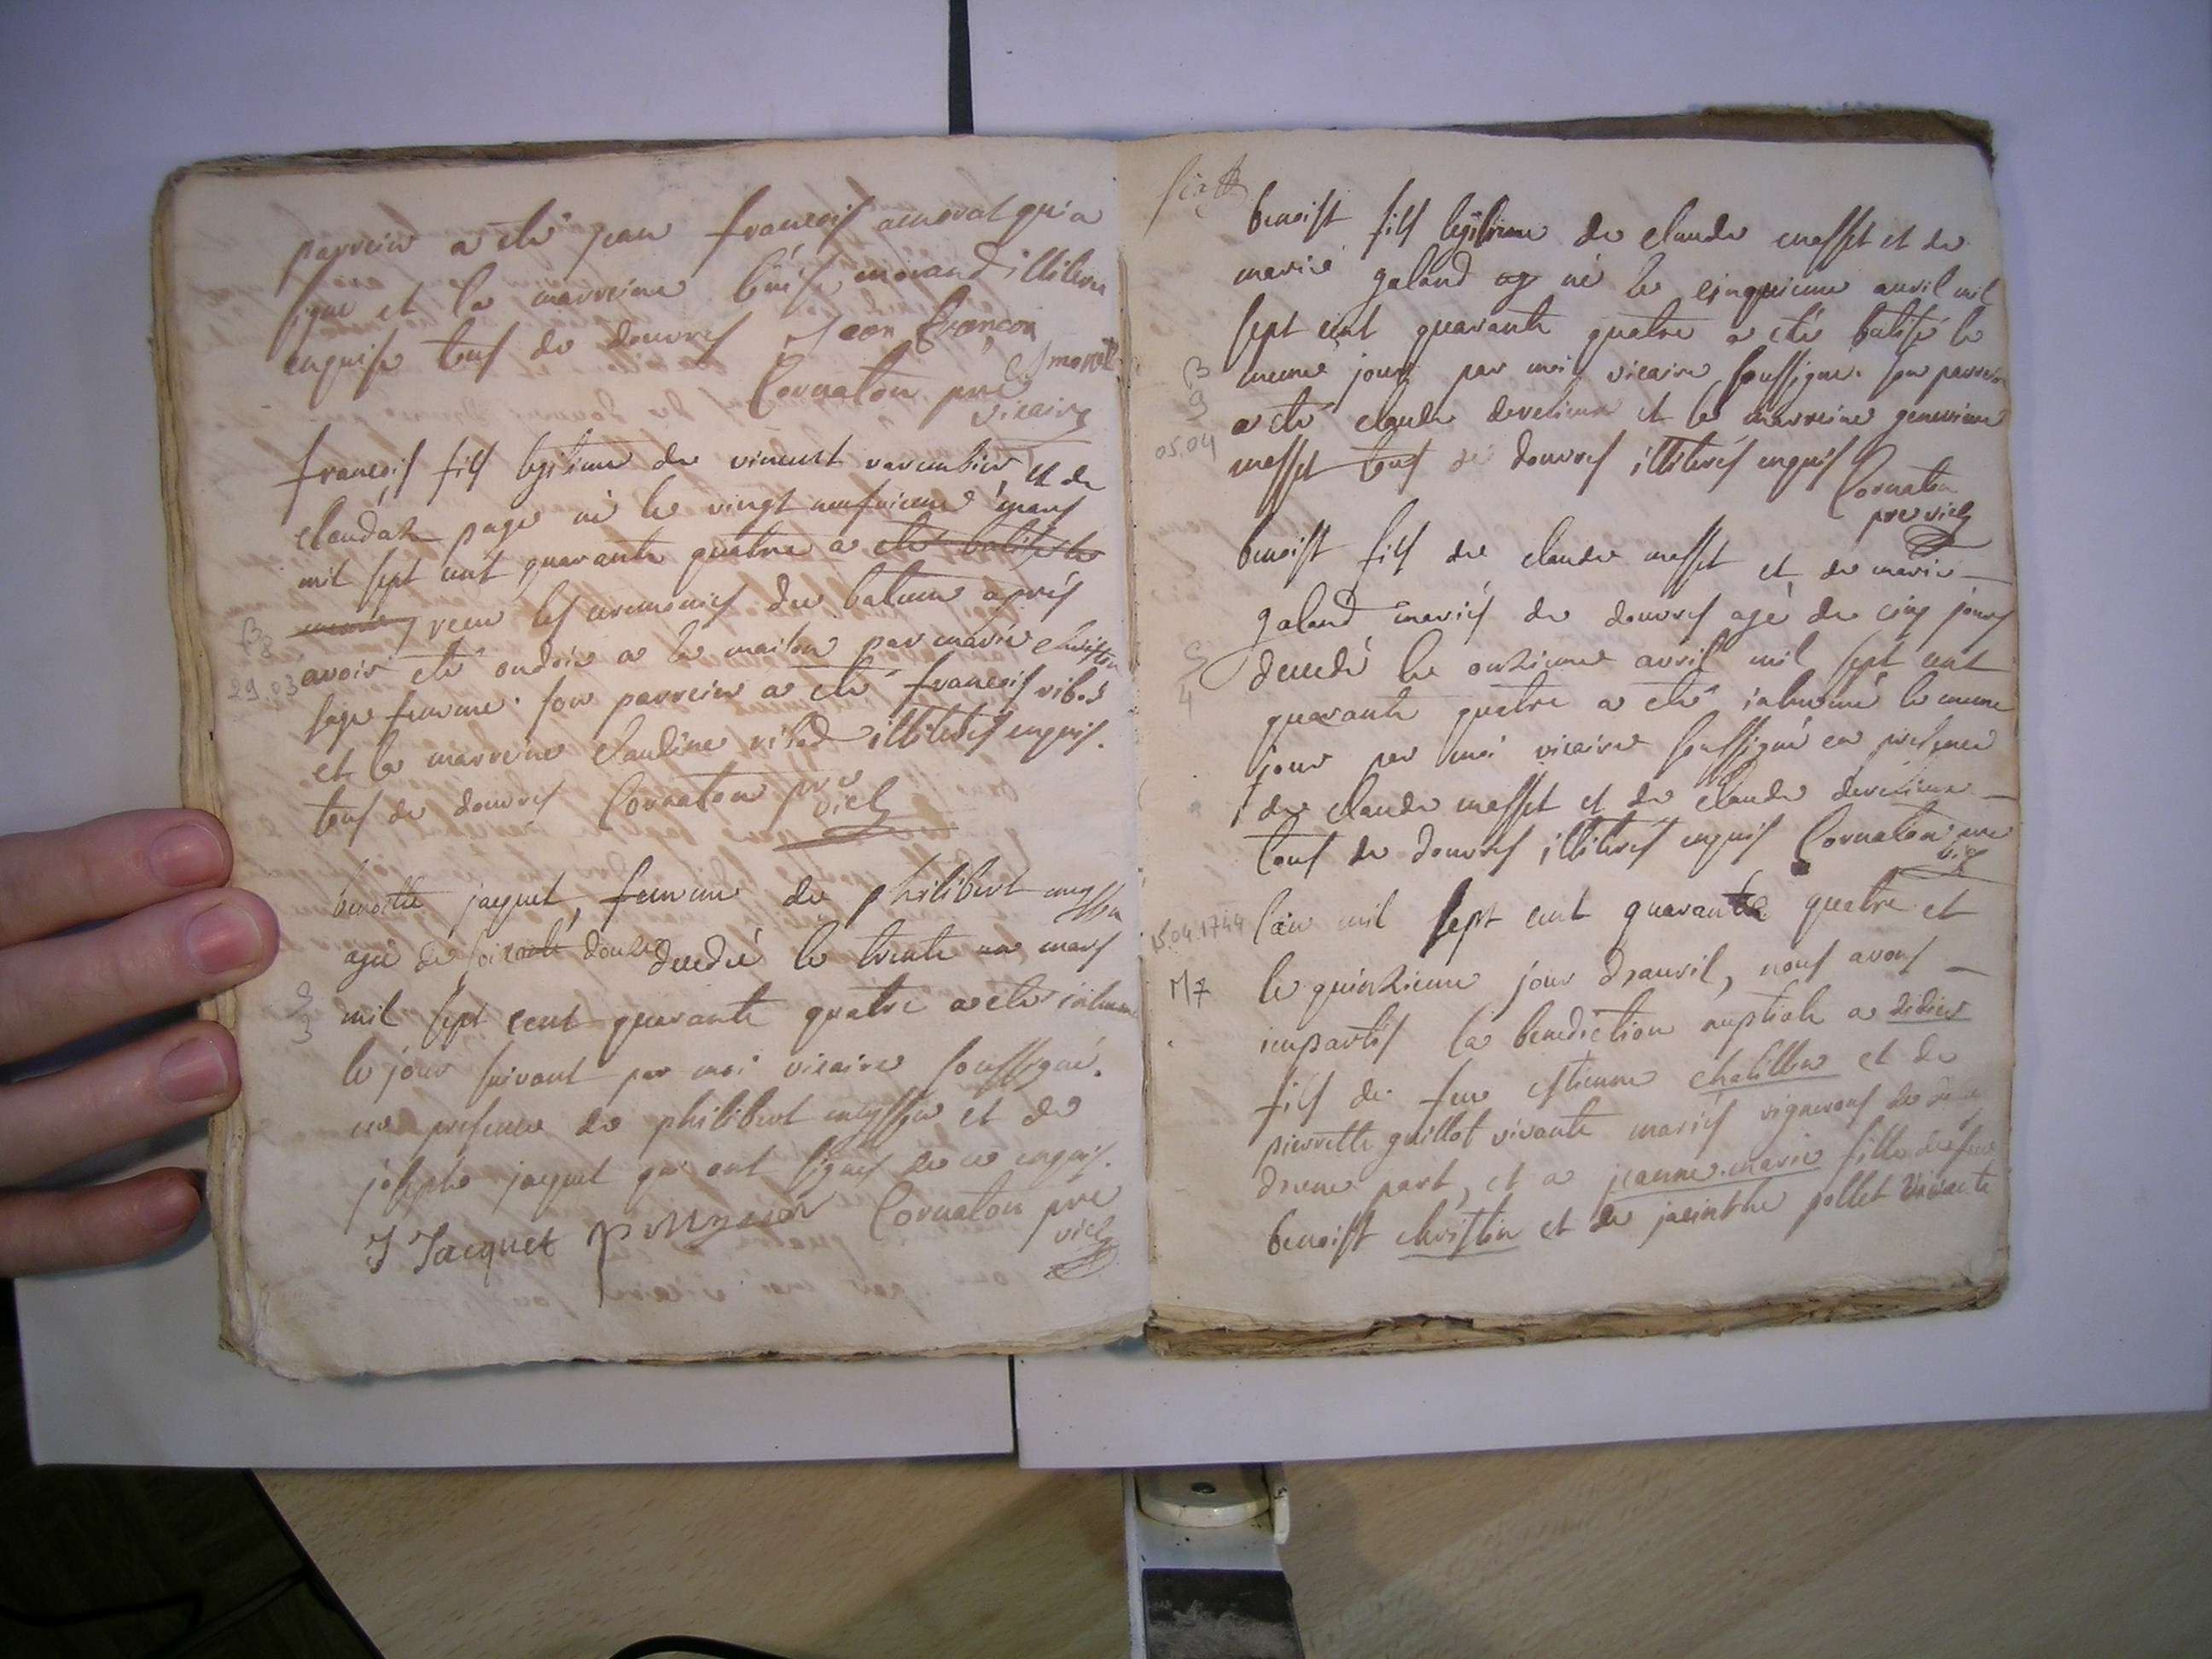 parrein a eté jean francois amorat qui a
signé et la marreine morand illiterée
enquise tous de douvres Jean françois
Amorat
Cornaton pre
vicaire
francois fils legitime de vincent varembier et de
claudaz page né le vingt neufvieme mars
mil sept cent quarante quatre a eté batisé le
meme receu les ceremonies du bateme aprés
B
8
29.03
avoir eté ondoié a la maison par marie christin
sage femme. son parrein a eté francois ribod
et la marreine claudine ribod illiterés enquis.
tous de douvres Cornaton pre
vice
benoitte jaquet, femme de philibert
agée de soixante douze decedée le trente un mars
S
3
mil sept cent quarante quatre a eté inhumée
le jour suivant par moi vicaire soussigné.
en presence de philibert et de
joseph jaquet qui ont signés de ce enquis.
J Jacquet Cornaton pre
vice
benoist fils legitime de claude messet et de
marie galand né le cinquieme avril mil
sept cent quarante quatre a eté batisé le
B
9
05.04
meme jour par moi vicaire soussigné. son parrein
a eté claude et la marreine
messet tous de douvres illiterés enquis
Cornaton
pre vice
benoist fils de claude messet et de marie
galand mariés de douvres agé de cinq jours
S
4
decedé le onzieme avril mil sept cent
quarante quatre a eté inhumé le meme
jour par moi vicaire soussigné en presence
de claude messet et de claude
tous de douvres illiterés enquis Cornaton pre
vice
15.04.1744
l'an mil sept cent quarante quatre et
M7
le quinzieme jour d'avril, nous avons
impartis la benediction nuptiale a didier
fils de feu estienne chatillon et de
pierrette guillot vivante mariés vignerons de
d'une part, et a jeanne-marie fille de feu
benoist christin et de jacinthe pollet vivante